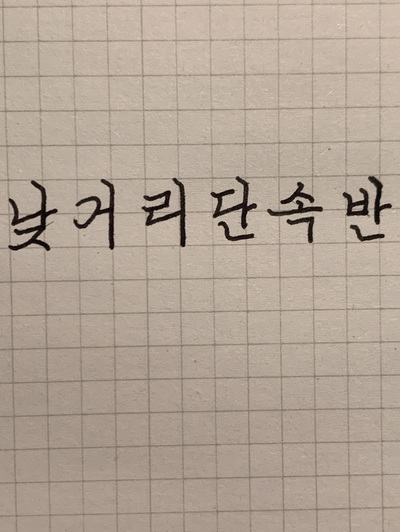 낮거리단속반